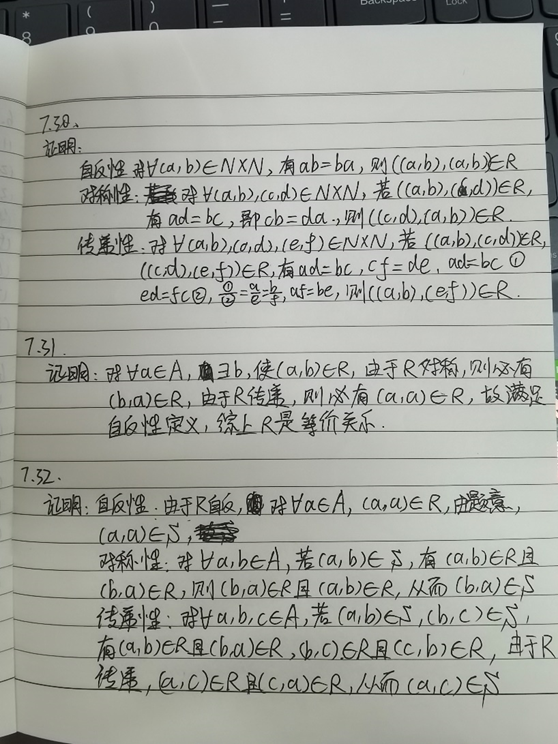 7.30.
证明:
自反性 对∀(a,b)∈N×N, 有ab=ba, 则((a,b),(a,b))∈R
对称性: 对∀(a,b),(c,d)∈N×N, 若((a,b),(c,d))∈R,
有ad=bc, 即cb=da, 则((c,d),(a,b))∈R.
传递性: 对∀(a,b),(c,d),(e,f)∈N×N, 若((a,b),(c,d))∈R,
((c,d),(e,f))∈R, 有ad=bc, cf=de, ad=bc ①
ed=fc ②, ①/②=a/e=b/f, af=be, 则((a,b),(e,f))∈R.
7.31.
证明: 对∀a∈A, ∃b, 使(a,b)∈R, 由于R对称, 则必有
(b,a)∈R, 由于R传递, 则必有(a,a)∈R, 故满足
自反性定义, 综上R是等价关系.
7.32.
证明: 自反性: 由于R自反, 对∀a∈A, (a,a)∈R, 由题意,
(a,a)∈S,
对称性: 对∀a,b∈A, 若(a,b)∈S, 有(a,b)∈R且
(b,a)∈R, 则(b,a)∈R且(a,b)∈R, 从而(b,a)∈S
传递性: 对∀a,b,c∈A, 若(a,b)∈S, (b,c)∈S,
有(a,b)∈R且(b,a)∈R, (b,c)∈R且(c,b)∈R, 由于R
传递, (a,c)∈R且(c,a)∈R, 从而(a,c)∈S